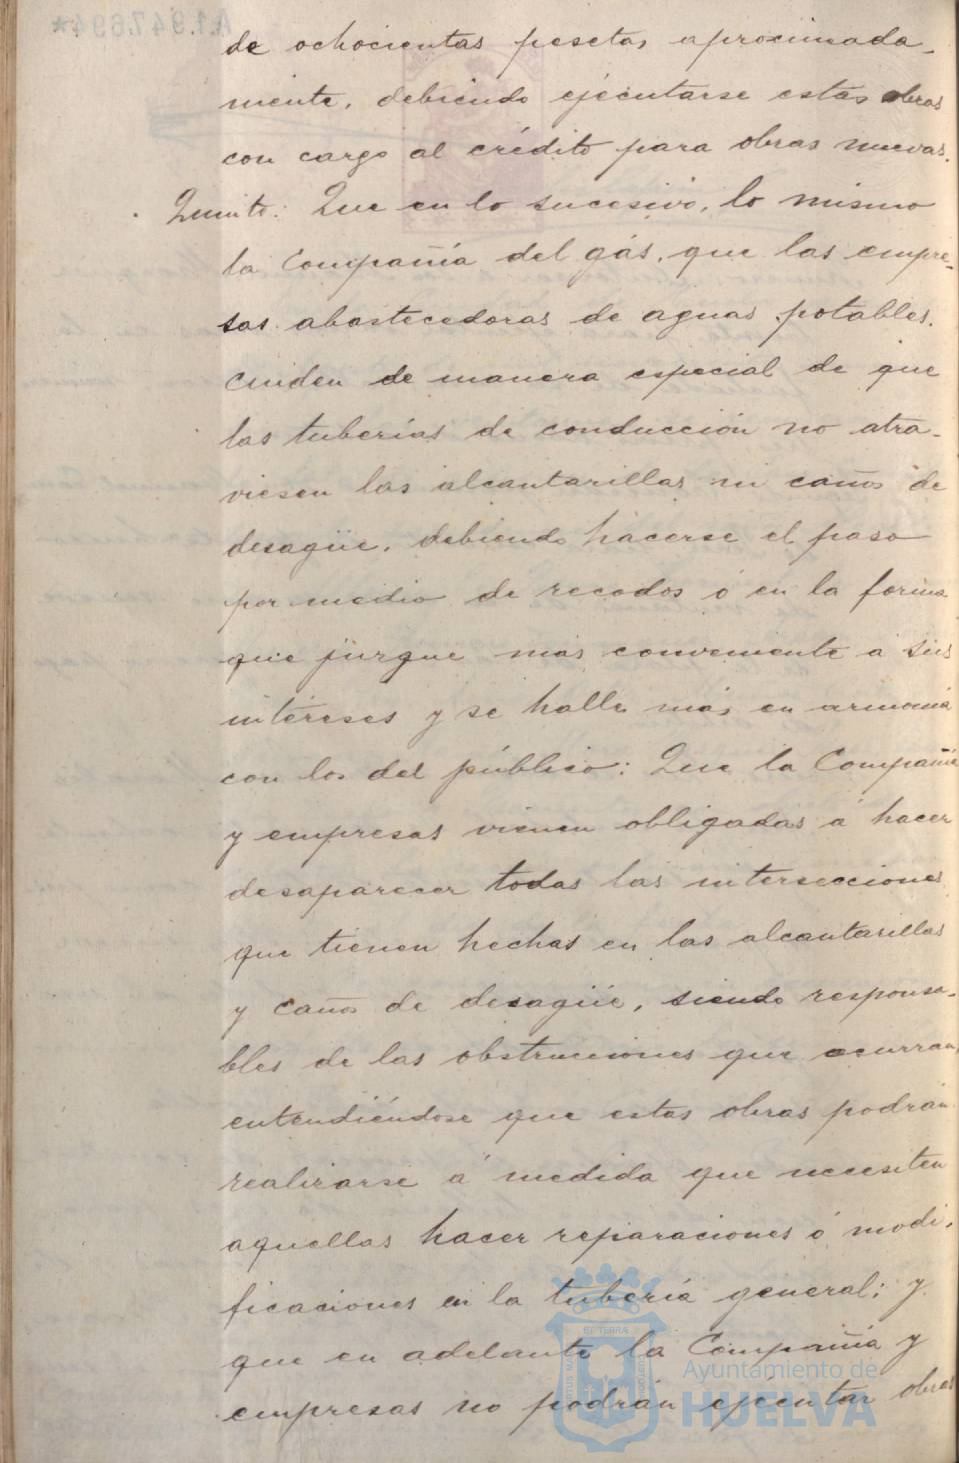 de ochocientas pesetas aproximada-
mente, debiendo ejecutarse estas obras
con cargo al crédito para obras nuevas.
Quinto: Que en lo sucesivo, lo mismo
la Compañía del gás, que las empre-
sas abastecedoras de aguas potables,
cuiden de manera especial de que
las tuberías de conducción no atra-
viesen las alcantarillas ni caños de
desagüe, debiendo hacerse el paso
por medio de recodos ó en la forma
que juzgue mas conveniente á sus
intereses y se halle más en armonía
con los del público: Que la Compañía
y empresas vienen obligadas á hacer
desaparecer todas las intersecciones
que tienen hechas en las alcantarillas
y caños de desagüe, siendo responsa-
bles de las obstrucciones que ocurran,
entendiéndose que estas obras podrán
realizarse á medida que necesiten
aquellas hacer reparaciones ó modi-
ficaciones en la tubería general; y
que en adelante la Compañía y
empresas no podrán ejecutar obras
A.1.947.694*
Ayuntamiento de
HUELVA